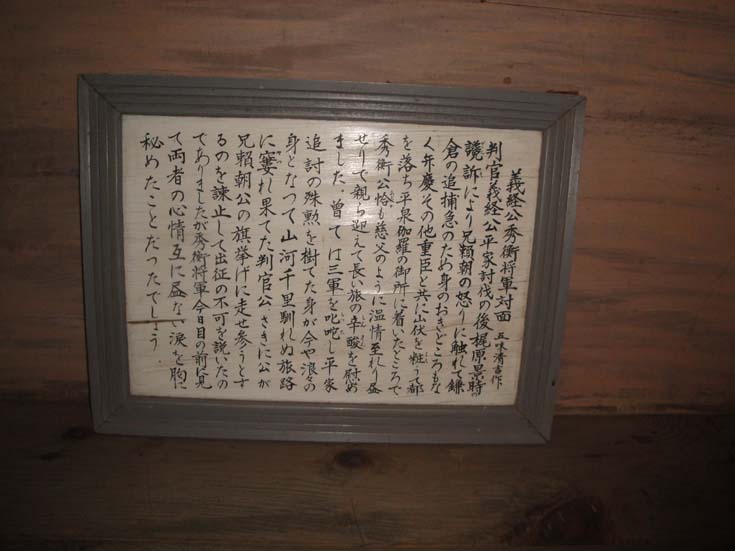 義経公秀衡将軍対面 五味清吉作
判官義経公平家討伐の後梶原景時の
讒訴により兄頼朝の怒りに触れて鎌
倉の追捕急のため身のおきどころもな
く弁慶その他重臣と共に山伏を粧うて都
を落ち平泉伽羅の御所に着いたところで
秀衡公恰も慈父のように温情至れり盡
せりで親ら迎えて長い旅の辛酸を慰め
ました、曾ては三軍を叱咤し平家
追討の殊勲を樹てた身が今や浪々の
身となつて山河千里馴れぬ旅路
に窶れ果てた判官公 さきに公が
兄頼朝公の旗挙げに走せ参うとす
るのを諫止して出征の不可を説いたの
でありましたが秀衡将軍今日目の前に見
て両者の心情互に盡ない涙を胸に
秘めたことだったでしょう